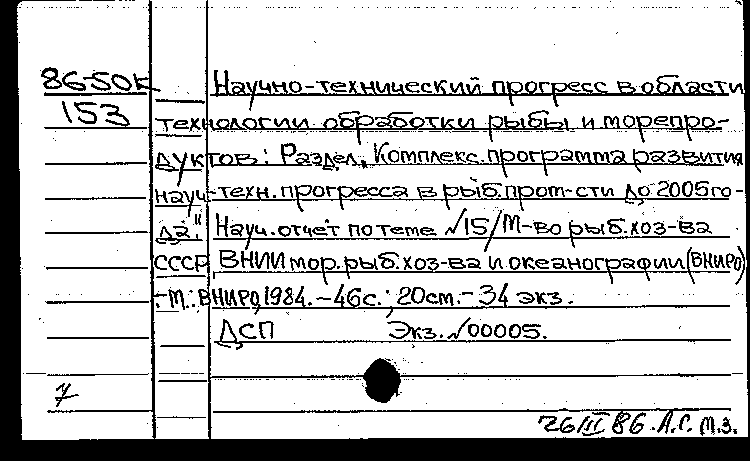 86-50к Научно-технический прогресс в области
153 технологии обработки рыбы и морепро-
дуктов: Раздел „Комплекс. программа развития
науч.-техн. прогресса в рыб. пром-сти до 2005 го-
да": Науч. отчет по теме №15/М-во рыб. хоз-ва
СССР, ВНИИ мор. рыб. хоз-ва и океанографии (ВНИРО)
.-М.: ВНИРО, 1984. -46с.; 20см.- 34 экз.
ДСП Экз. №00005.
7
26/III 86. Л.Г. м.з.